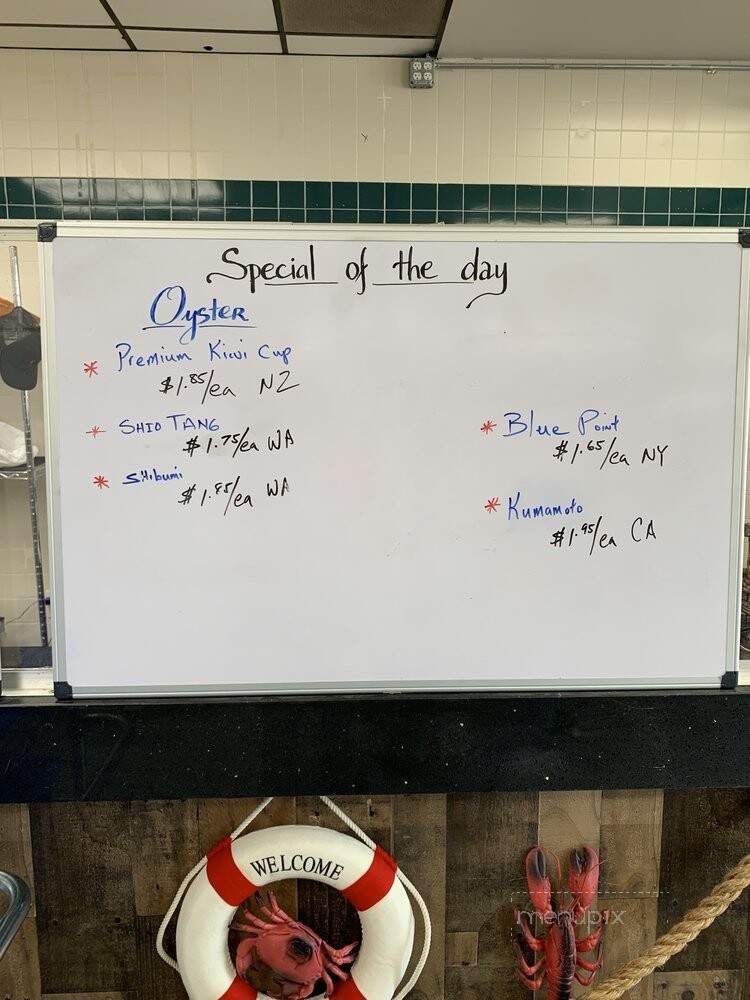 Special of the day
Oyster
* Premium Kiwi Cup
$1.85/ea NZ
* SHIO TANG
$1.75/ea WA
* Shibumi
$1.85/ea WA
* Blue Point
$1.65/ea NY
* Kumamoto
$1.95/ea CA
WELCOME
menupix